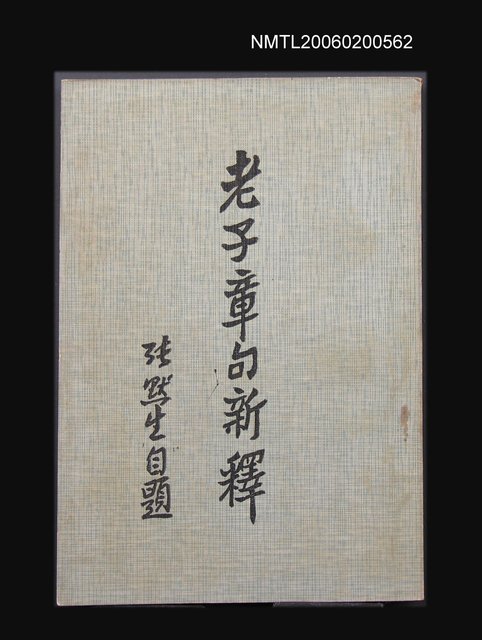 NMTL20060200562
老子章句新釋
張默生自題